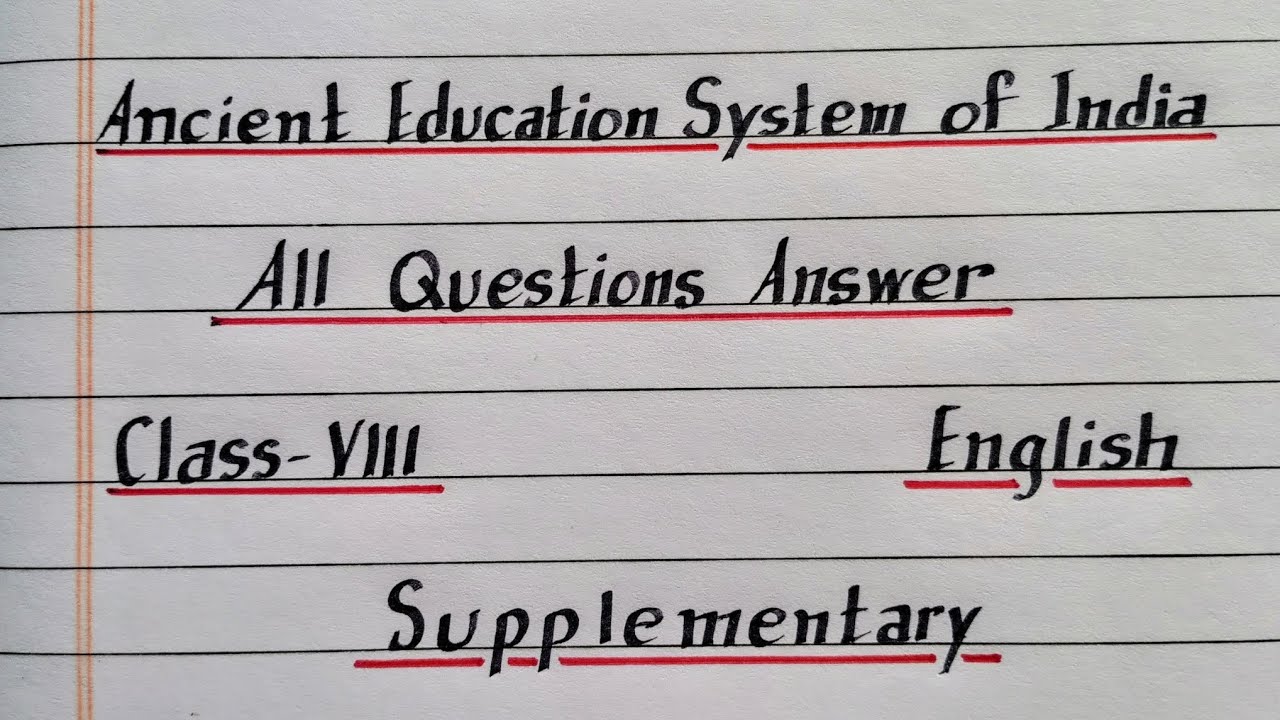 Ancient Education System of India
All Questions Answer
Class-VIII English
Supplementary